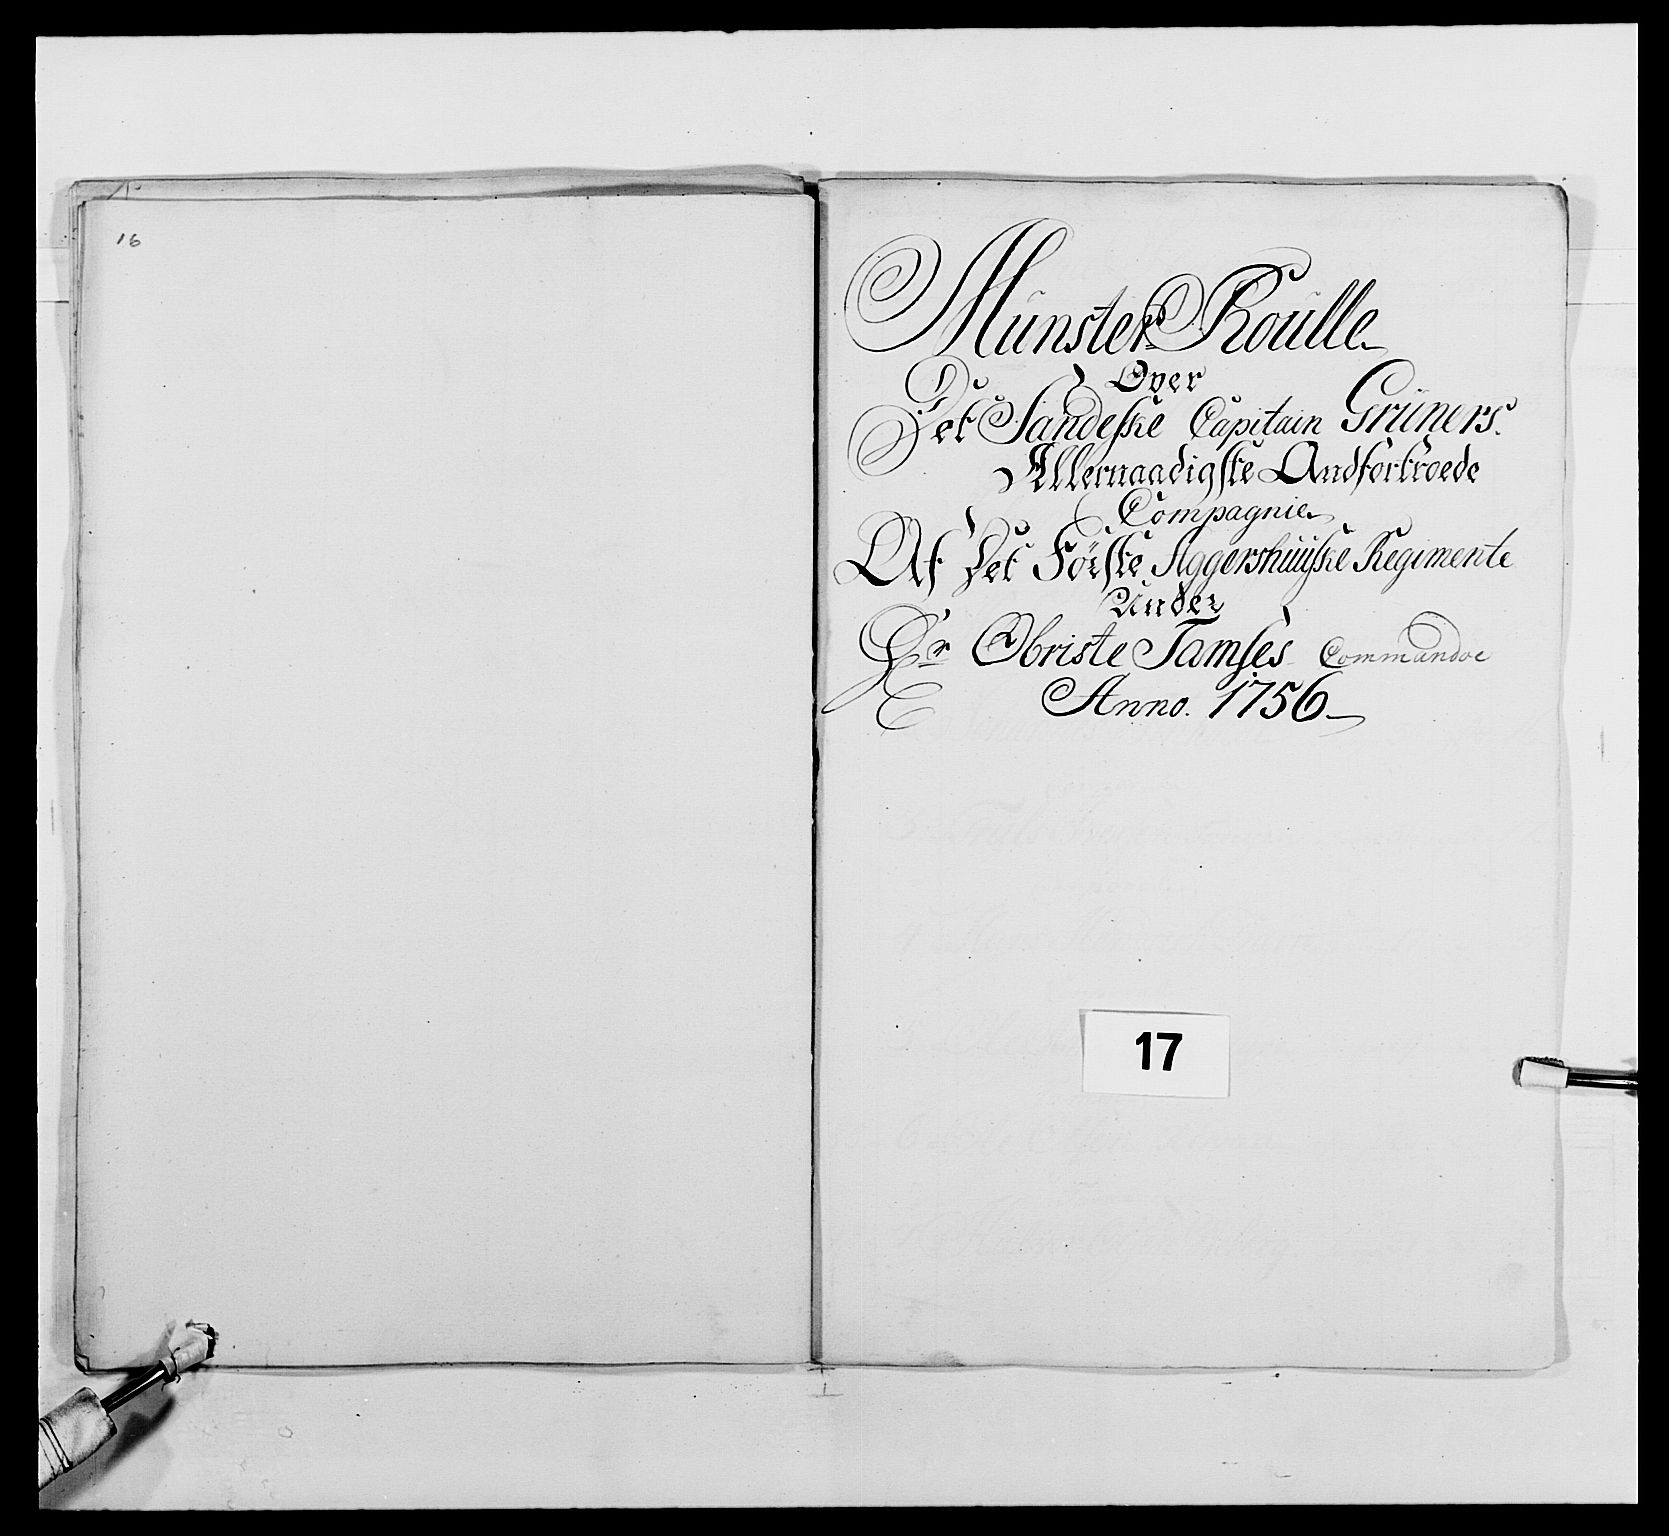 16
Münster Roülle
Over
Det Sandeske Capitain Grüners
Allernaadigste Andfortroede
Compagnie
Af Det Første Aggershüüske Regimente
Under
Hr Obriste Tamses Commandoe
Anno. 1756
17